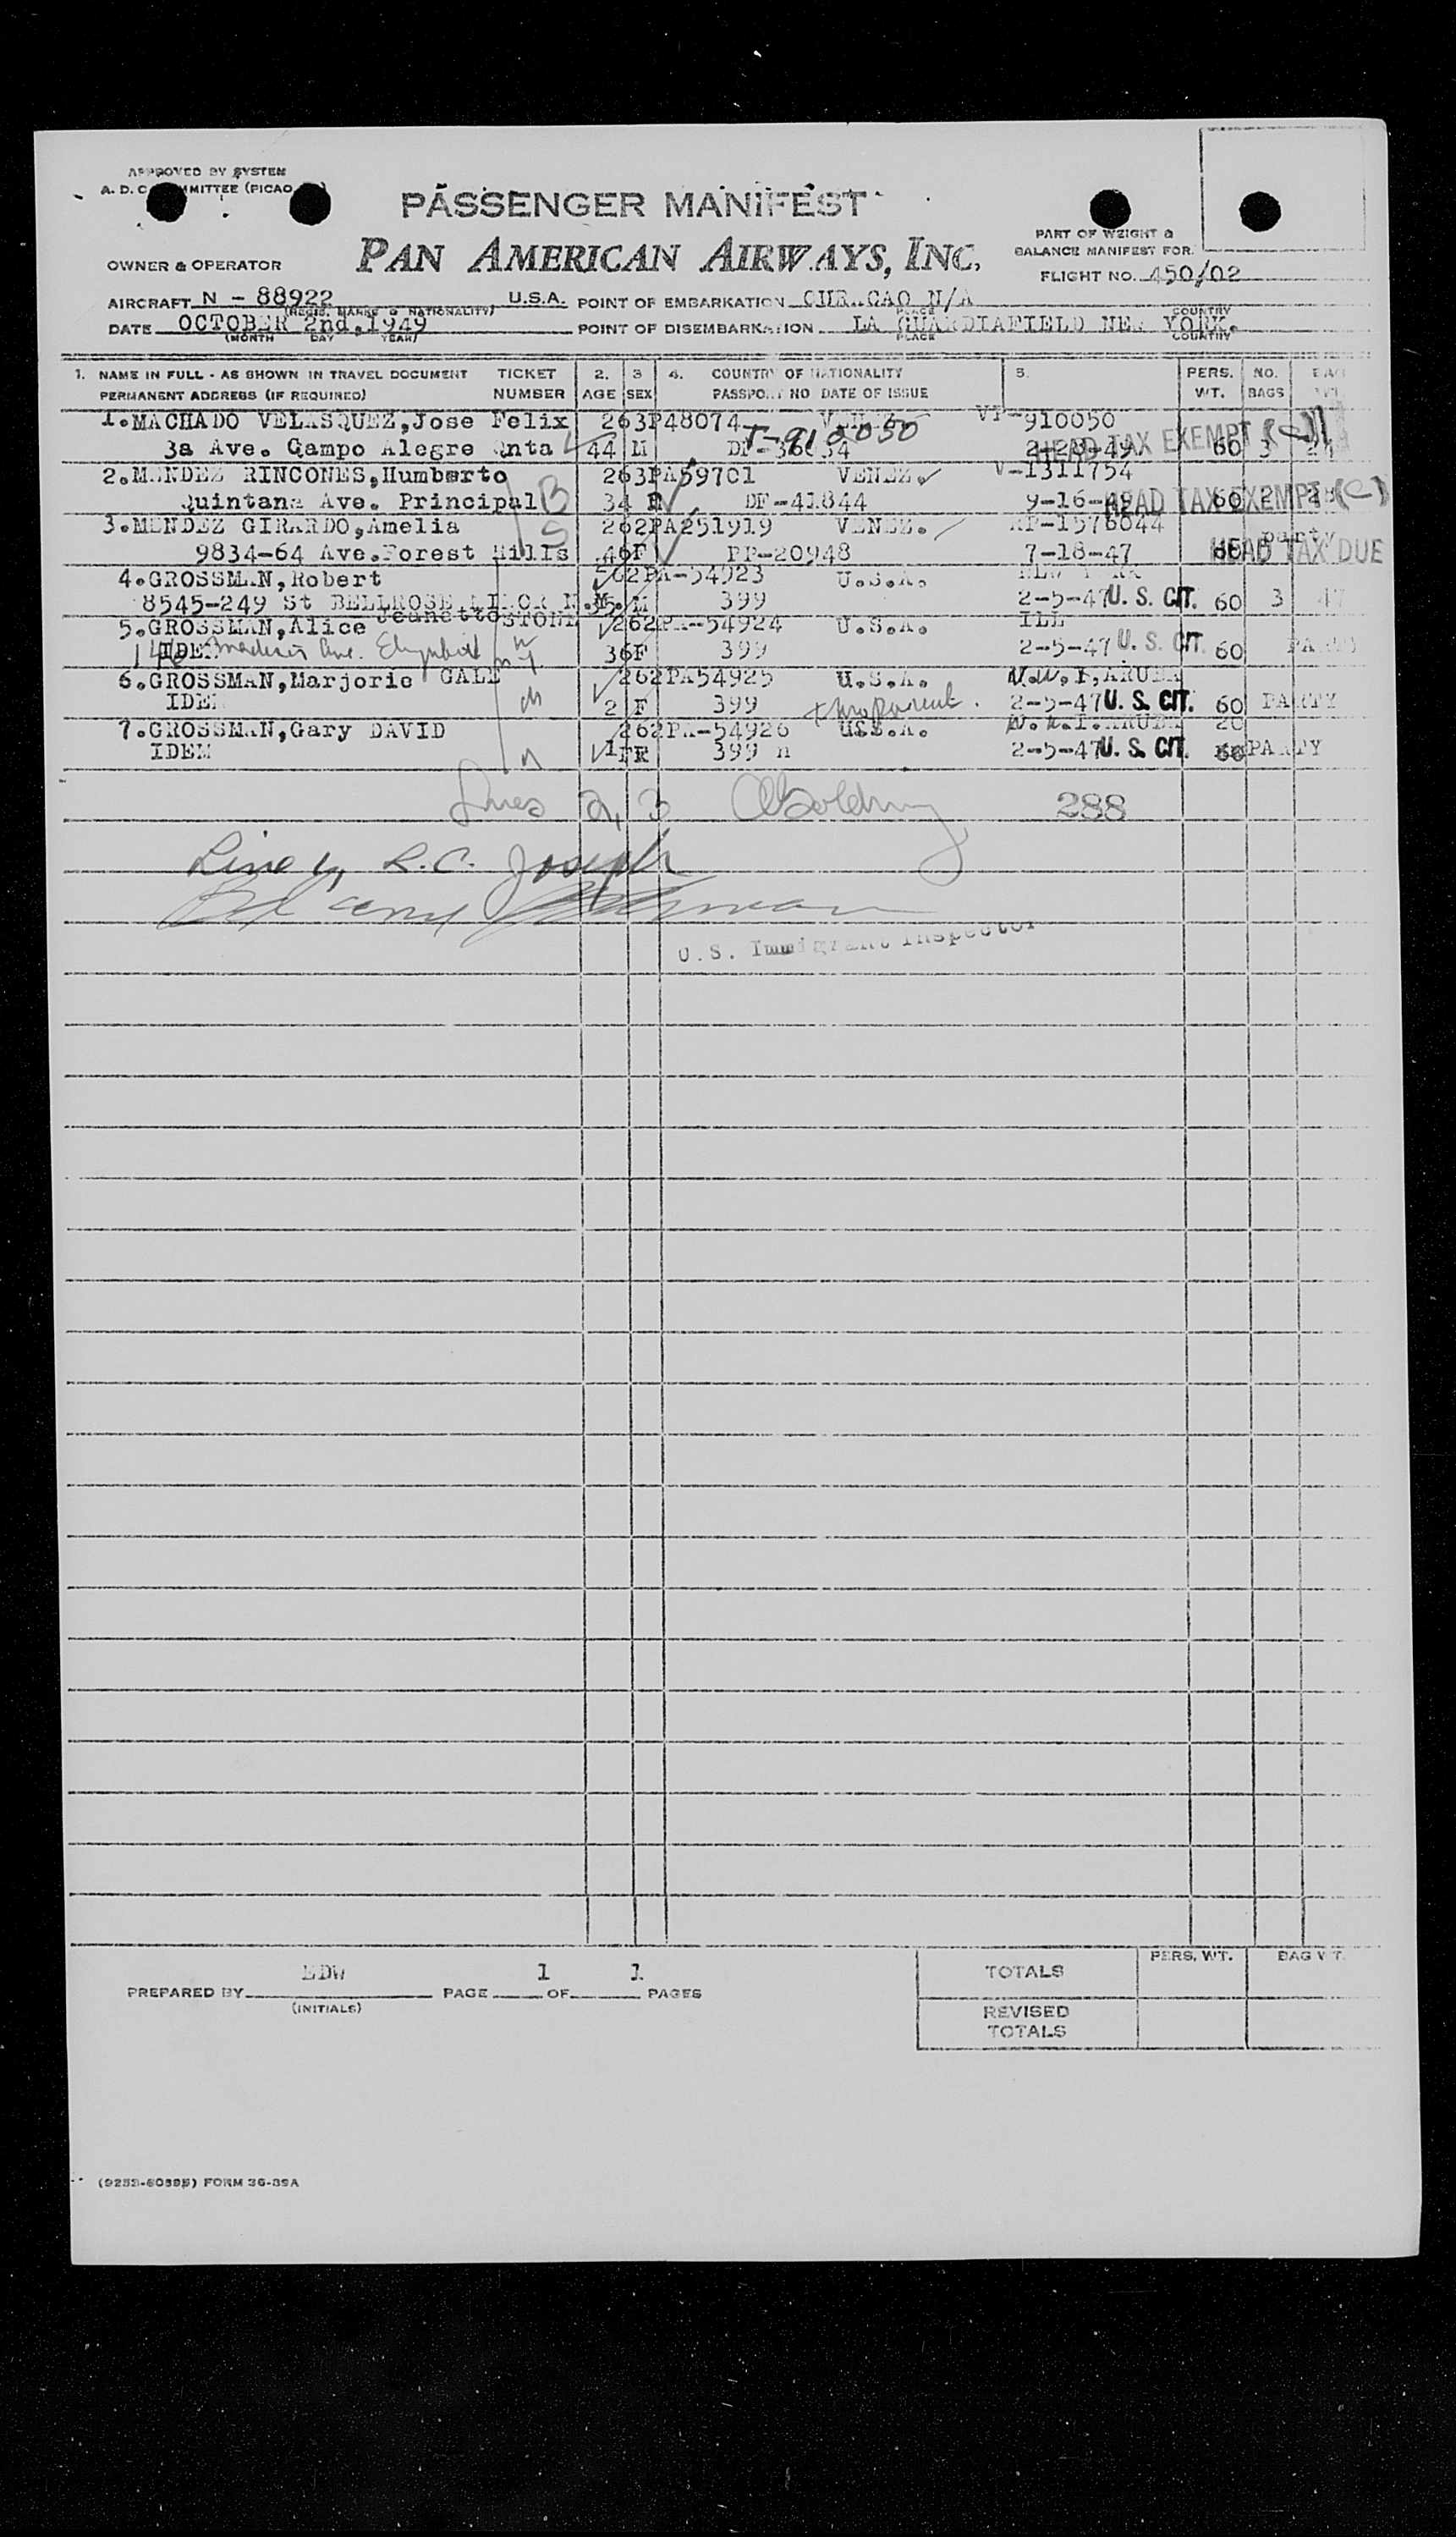 APPROVED BY SYSTEM
A. D. C. COMMITTEE (PICAO
PASSENGER MANIFEST
PAN AMERICAN AIRWAYS, INC.
PART OF WEIGHT &
BALANCE MANIFEST FOR
OWNER & OPERATOR
FLIGHT NO. 450/02
AIRCRAFT N - 88922 U.S.A. POINT OF EMBARKATION CURACAO N/A
(REGIS. MARKS & NATIONALITY) PLACE COUNTRY
DATE OCTOBER 2nd,1949 POINT OF DISEMBARKATION LA GUARDIAFIELD NEW YORK.
(MONTH DAY YEAR) PLACE COUNTRY
1. NAME IN FULL - AS SHOWN IN TRAVEL DOCUMENT TICKET 2. 3 4. COUNTRY OF NATIONALITY 5. PERS. NO. BAG
PERMANENT ADDRESS (IF REQUIRED) NUMBER AGE SEX PASSPORT NO DATE OF ISSUE WT. BAGS WT.
1.MACHADO VELASQUEZ,Jose Felix 263P48074 VENEZ VP-910050
T-910050
3a Ave. Campo Alegre Qnta 44 M DP-36034 2-28-49 HEAD TAX EXEMPT (C) 60 3 24
2.MENDEZ RINCONES,Humberto 263PA59701 VENEZ. V-1311754
Quintana Ave. Principal B 34 DF-41844 9-16-49 HEAD TAX EXEMPT (C) 60 2 28
3.MENDEZ GIRARDO,Amelia 262PA251919 VENEZ. RP-1576044
9834-64 Ave.Forest Hills 46 F PP-20948 7-18-47 60 party HEAD TAX DUE
4.GROSSMAN,Robert 262PA-54923 U.S.A. NEW YORK
8545-249 St BELLROSE MANOR N.Y. 35 M 399 2-5-47 U. S. CIT. 60 3 47
5.GROSSMAN,Alice Jeanette STONE 262PA-54924 U.S.A. ILL
IDEM 36 F 399 2-5-47 U. S. CIT. 60 PARTY
6.GROSSMAN,Marjorie GALE 262PA54925 U.S.A. N.W.I,ARUBA
IDEM 2 F 399 2-5-47 U. S. CIT. 60 PARTY
7.GROSSMAN,Gary DAVID 262PA-54926 U.S.A. N.W.I.ARUBA 20
IDEM 1 399 2-5-47 U. S. CIT. PARTY
Lines 2, 3 288
Line 1, R.C. Joseph
U.S. Immigrant Inspector
PREPARED BY EDW PAGE 1 OF 1 PAGES
(INITIALS)
PERS. WT. BAG WT.
TOTALS
REVISED
TOTALS
FORM 36-39A